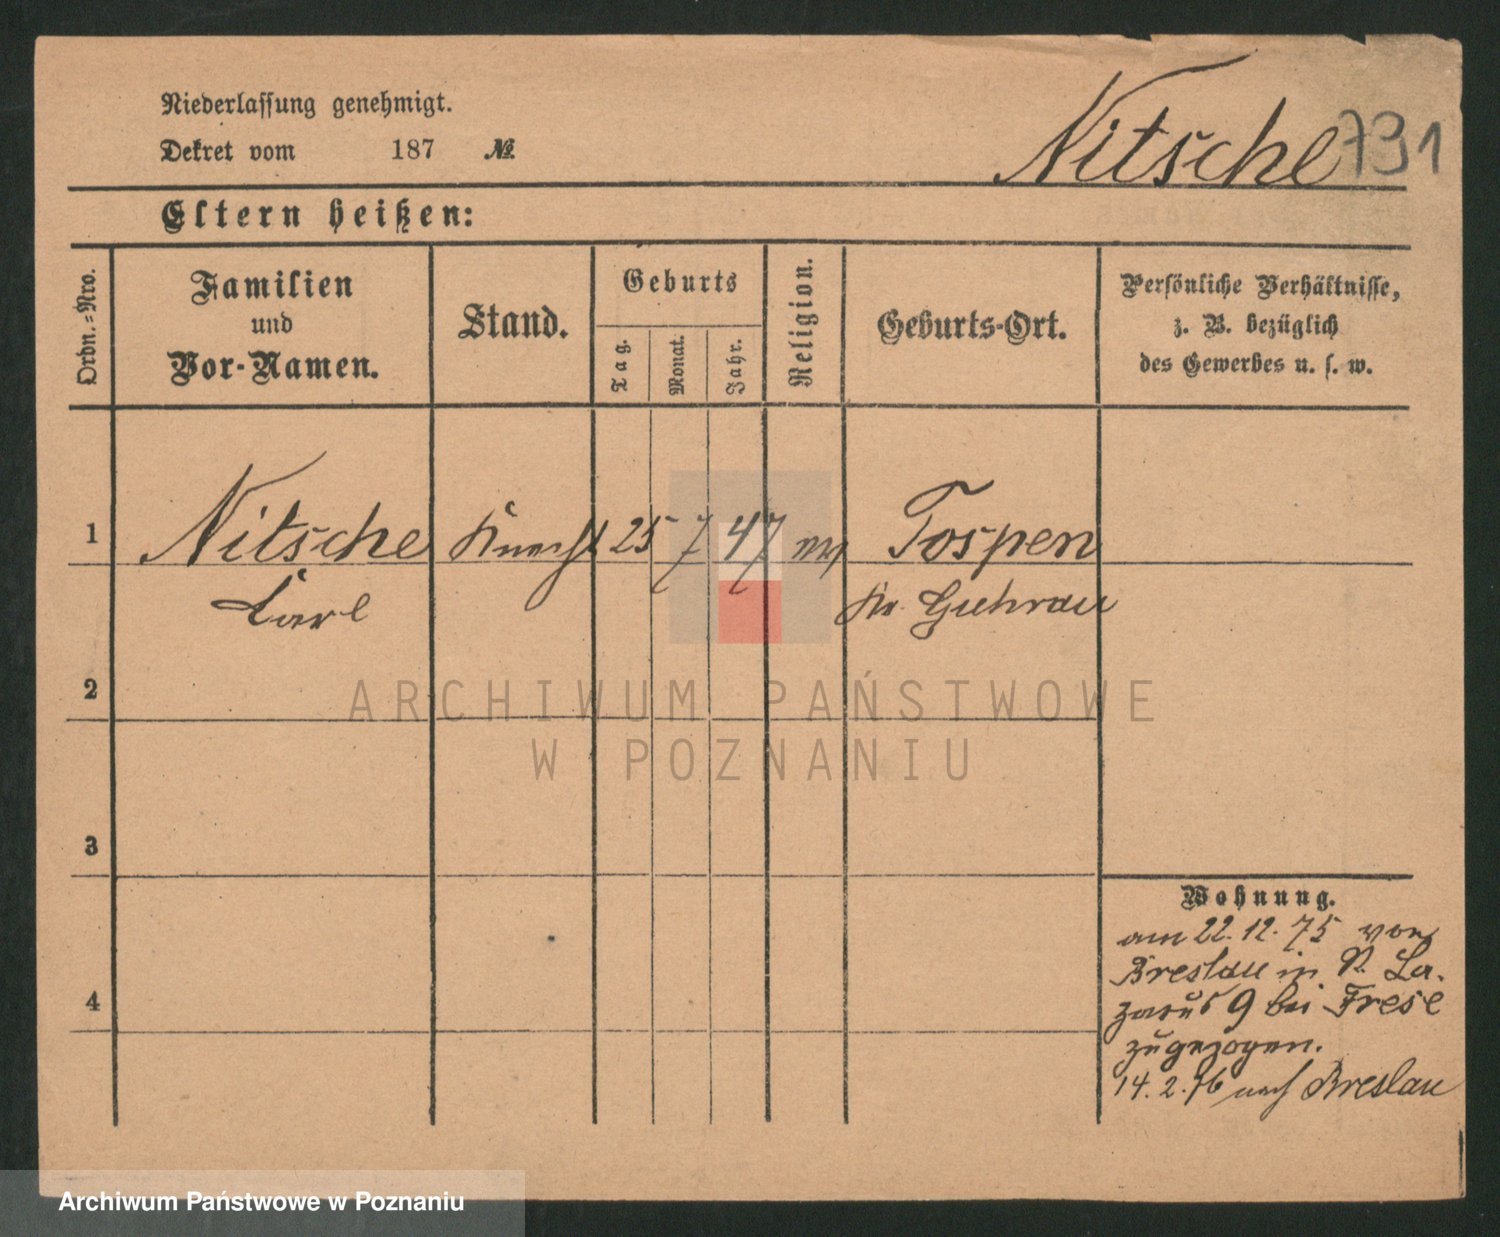 Niederlassung genehmigt.
Dekret vom 187 №
Nitsche 731
Eltern heißen:
Ordn.-Nro.
Familien
und
Vor-Namen.
Stand.
Geburts
Tag.
Monat.
Jahr.
Religion.
Geburts-Ort.
Persönliche Verhältnisse,
z. B. bezüglich
des Gewerbes u. s. w.
1 Nitsche Knecht 25 7 47 Tospen
Carl Kr. Guhrau
2
ARCHIWUM PAŃSTWOWE
W POZNANIU
3
4
Wohnung.
am 22.12.75 von
Breslau in St. La-
zarus 9 bei Frese
zugezogen.
14.2.76 nach Breslau
Archiwum Państwowe w Poznaniu